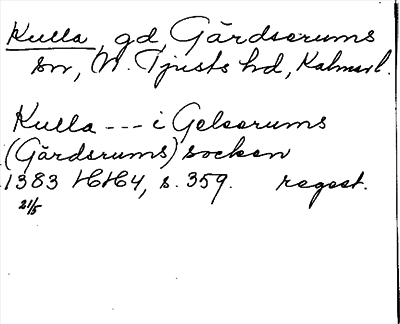 Kulla, gd, Gärdserums
sn, N. Tjusts hd, Kalmar l.
Kulla --- i Gelserums
(Gärdsrums) socken
1383 HH4, s. 359. regest.
21/5